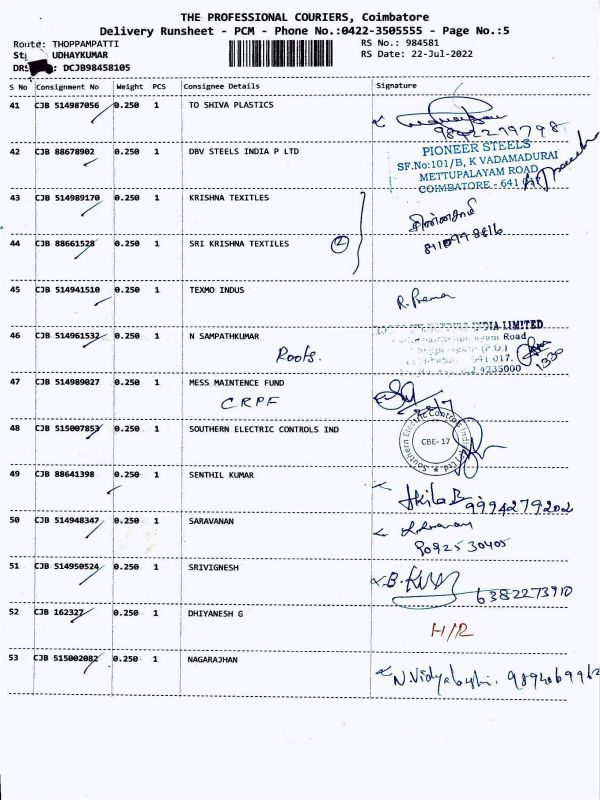 THE PROFESSIONAL COURIERS, Coimbatore
Delivery Runsheet - PCM - Phone No.:0422-3505555 - Page No.:5
Route: THOPPAMPATTI RS No.: 984581
UDHAYKUMAR RS Date: 22-Jul-2022
: DCJB98458105
S No Consignment No Weight PCS Consignee Details Signature
41 CJB 514987056 0.250 1 TO SHIVA PLASTICS
9842279798
42 CJB 88678902 0.250 1 DBV STEELS INDIA P LTD
PIONEER STEELS
SF.No:101/B, K VADAMADURAI
METTUPALAYAM ROAD
COIMBATORE - 641 017
43 CJB 514989170 0.250 1 KRISHNA TEXITLES
44 CJB 88661528 0.250 1 SRI KRISHNA TEXTILES 2
45 CJB 514941510 0.250 1 TEXMO INDUS
R. Prema
46 CJB 514961532 0.250 1 N SAMPATHKUMAR
Roots.
INDIA LIMITED
Road
641 017.
4235000
1330
47 CJB 514989027 0.250 1 MESS MAINTENCE FUND
CRPF
48 CJB 515007853 0.250 1 SOUTHERN ELECTRIC CONTROLS IND
Southern Electric Controls India (P) Ltd
CBE-17
49 CJB 88641398 0.250 1 SENTHIL KUMAR
Akila B 9994279202
50 CJB 514948347 0.250 1 SARAVANAN
9092530405
51 CJB 514950524 0.250 1 SRIVIGNESH
6382273910
52 CJB 162327 0.250 1 DHIYANESH G
H/R
53 CJB 515002082 0.250 1 NAGARAJHAN